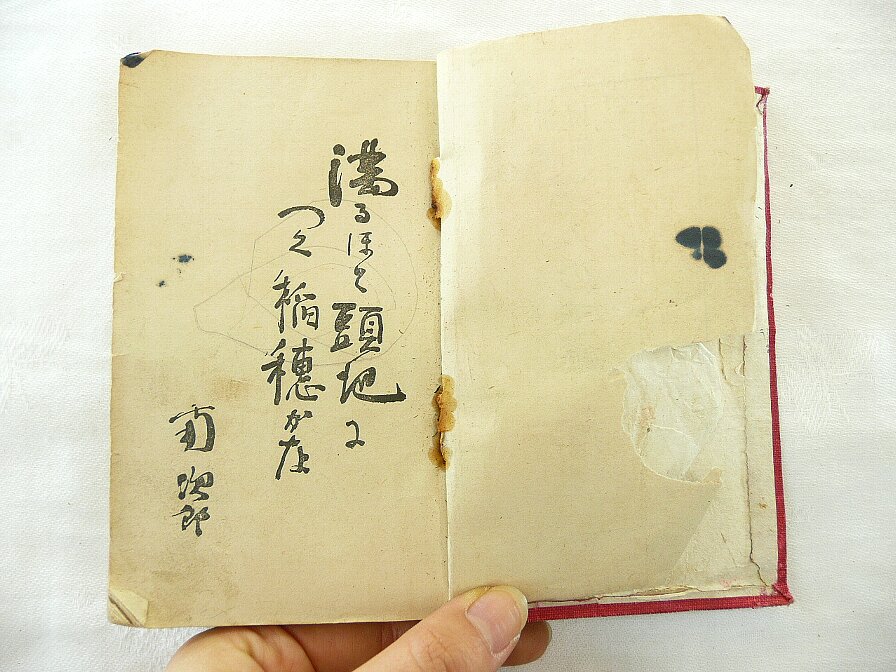 満るほと頭地に
つく稲穂かな
南次郎